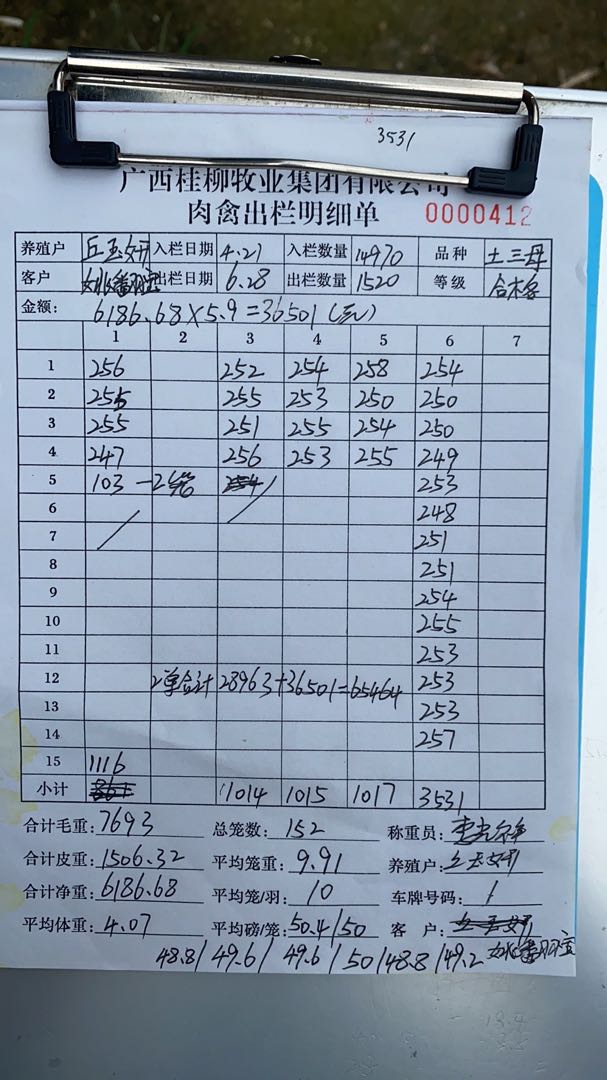 3531
广西桂柳牧业集团有限公司
肉禽出栏明细单 0000412
养殖户 丘玉妍 入栏日期 4.21 入栏数量 14970 品种 土三丹
客户 出栏日期 6.28 出栏数量 1520 等级
金额: 6186.68×5.9=36501(元)
1 2 3 4 5 6 7
1 256 252 254 258 254
2 255 255 253 250 250
3 255 251 255 254 250
4 247 256 253 255 249
5 103 —2笼 254 253
6 248
7 251
8 251
9 254
10 255
11 253
12 2单合计 28963+36501=65464 253
13 253
14 257
15 1116
小计 861 1014 1015 1017 3531
合计毛重: 7693 总笼数: 152 称重员:
合计皮重: 1506.32 平均笼重: 9.91 养殖户: 丘玉妍
合计净重: 6186.68 平均笼/羽: 10 车牌号码: /
平均体重: 4.07 平均磅/笼: 50.4/50 客户: 丘玉妍
48.8/49.6/49.6/50/48.8/49.2